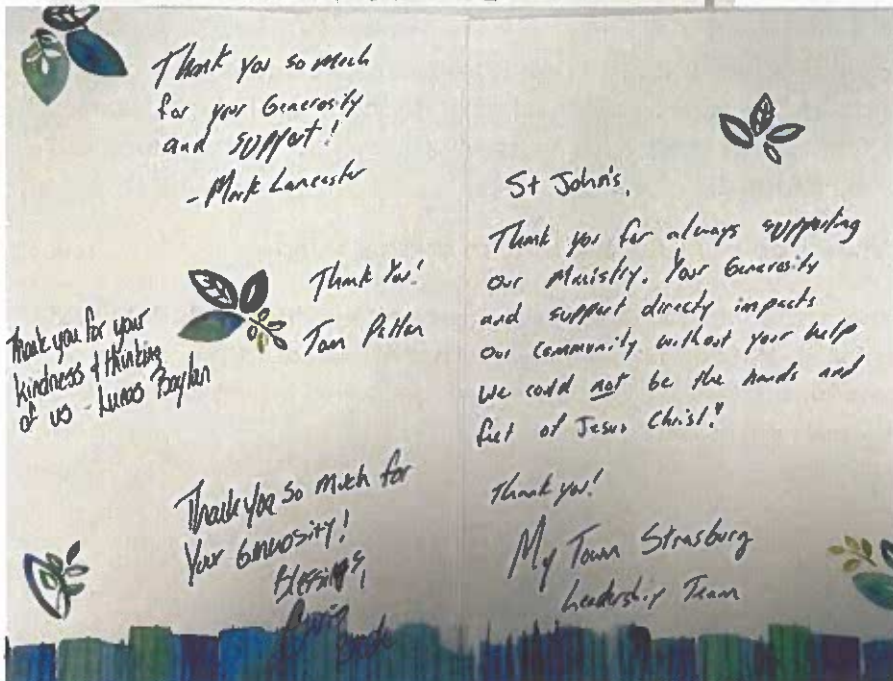 Thank you so much
for your Generosity
and support!
- Mark Lancaster
Thank You!
Tom
Thank you for your
kindness & thinking
of us - Lucas Boylan
Thank you so much for
Your Generosity!
Blessings,
St John's,
Thank you for always supporting
our Ministry. Your Generosity
and support directly impacts
our community without your help
we could not be the hands and
feet of Jesus Christ!
Thank you!
My Town Strasburg
Leadership Team